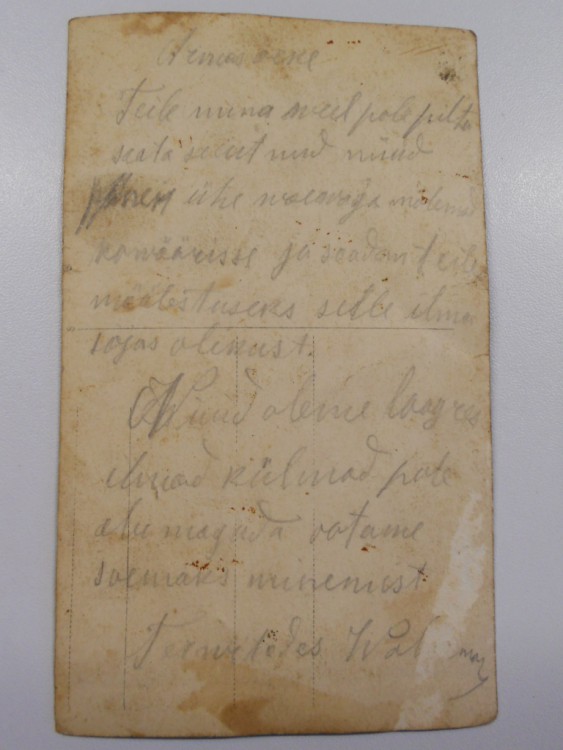 Armas onne
Teile mina weel pole pilti
saata saanud nüüd
panen ühe waewaga mõlemad
konwöörisse ja saadan teile
määlestuseks selle ilma
sojas olekust.
Nüüd oleme laagres
ilmad külmad pole
alu magada ootame
soemaks minemist
Terwitedes